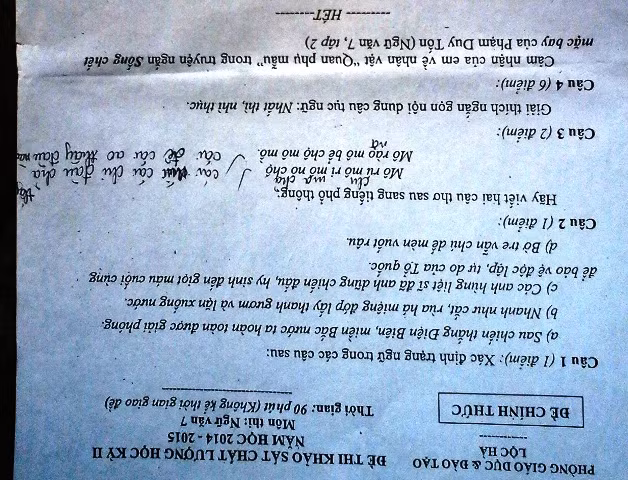 PHÒNG GIÁO DỤC & ĐÀO TẠO
LỘC HÀ
ĐỀ CHÍNH THỨC
ĐỀ THI KHẢO SÁT CHẤT LƯỢNG HỌC KỲ II
NĂM HỌC 2014 - 2015
Môn thi: Ngữ văn 7
Thời gian: 90 phút (Không kể thời gian giao đề)
Câu 1 (1 điểm): Xác định trạng ngữ trong các câu sau:
a) Sau chiến thắng Điện Biên, miền Bắc nước ta hoàn toàn được giải phóng.
b) Nhanh như cắt, rùa há miệng đớp lấy thanh gươm và lặn xuống nước.
c) Các anh hùng liệt sĩ đã anh dũng chiến đấu, hy sinh đến giọt máu cuối cùng
để bảo vệ độc lập, tự do của Tổ quốc.
d) Bờ tre vẫn chú dế mèn vuốt râu.
Câu 2 (1 điểm):
Hãy viết hai câu thơ sau sang tiếng phổ thông:
Mô rú mô ri mô nỏ chộ
Mô rào mô bể chộ mô mồ.
Câu 3 (2 điểm):
Giải thích ngắn gọn nội dung câu tục ngữ: Nhất thì, nhì thục.
Câu 4 (6 điểm):
Cảm nhận của em về nhân vật "Quan phụ mẫu" trong truyện ngắn Sống chết
mặc bay của Phạm Duy Tốn (Ngữ văn 7, tập 2)
---------- HẾT ----------